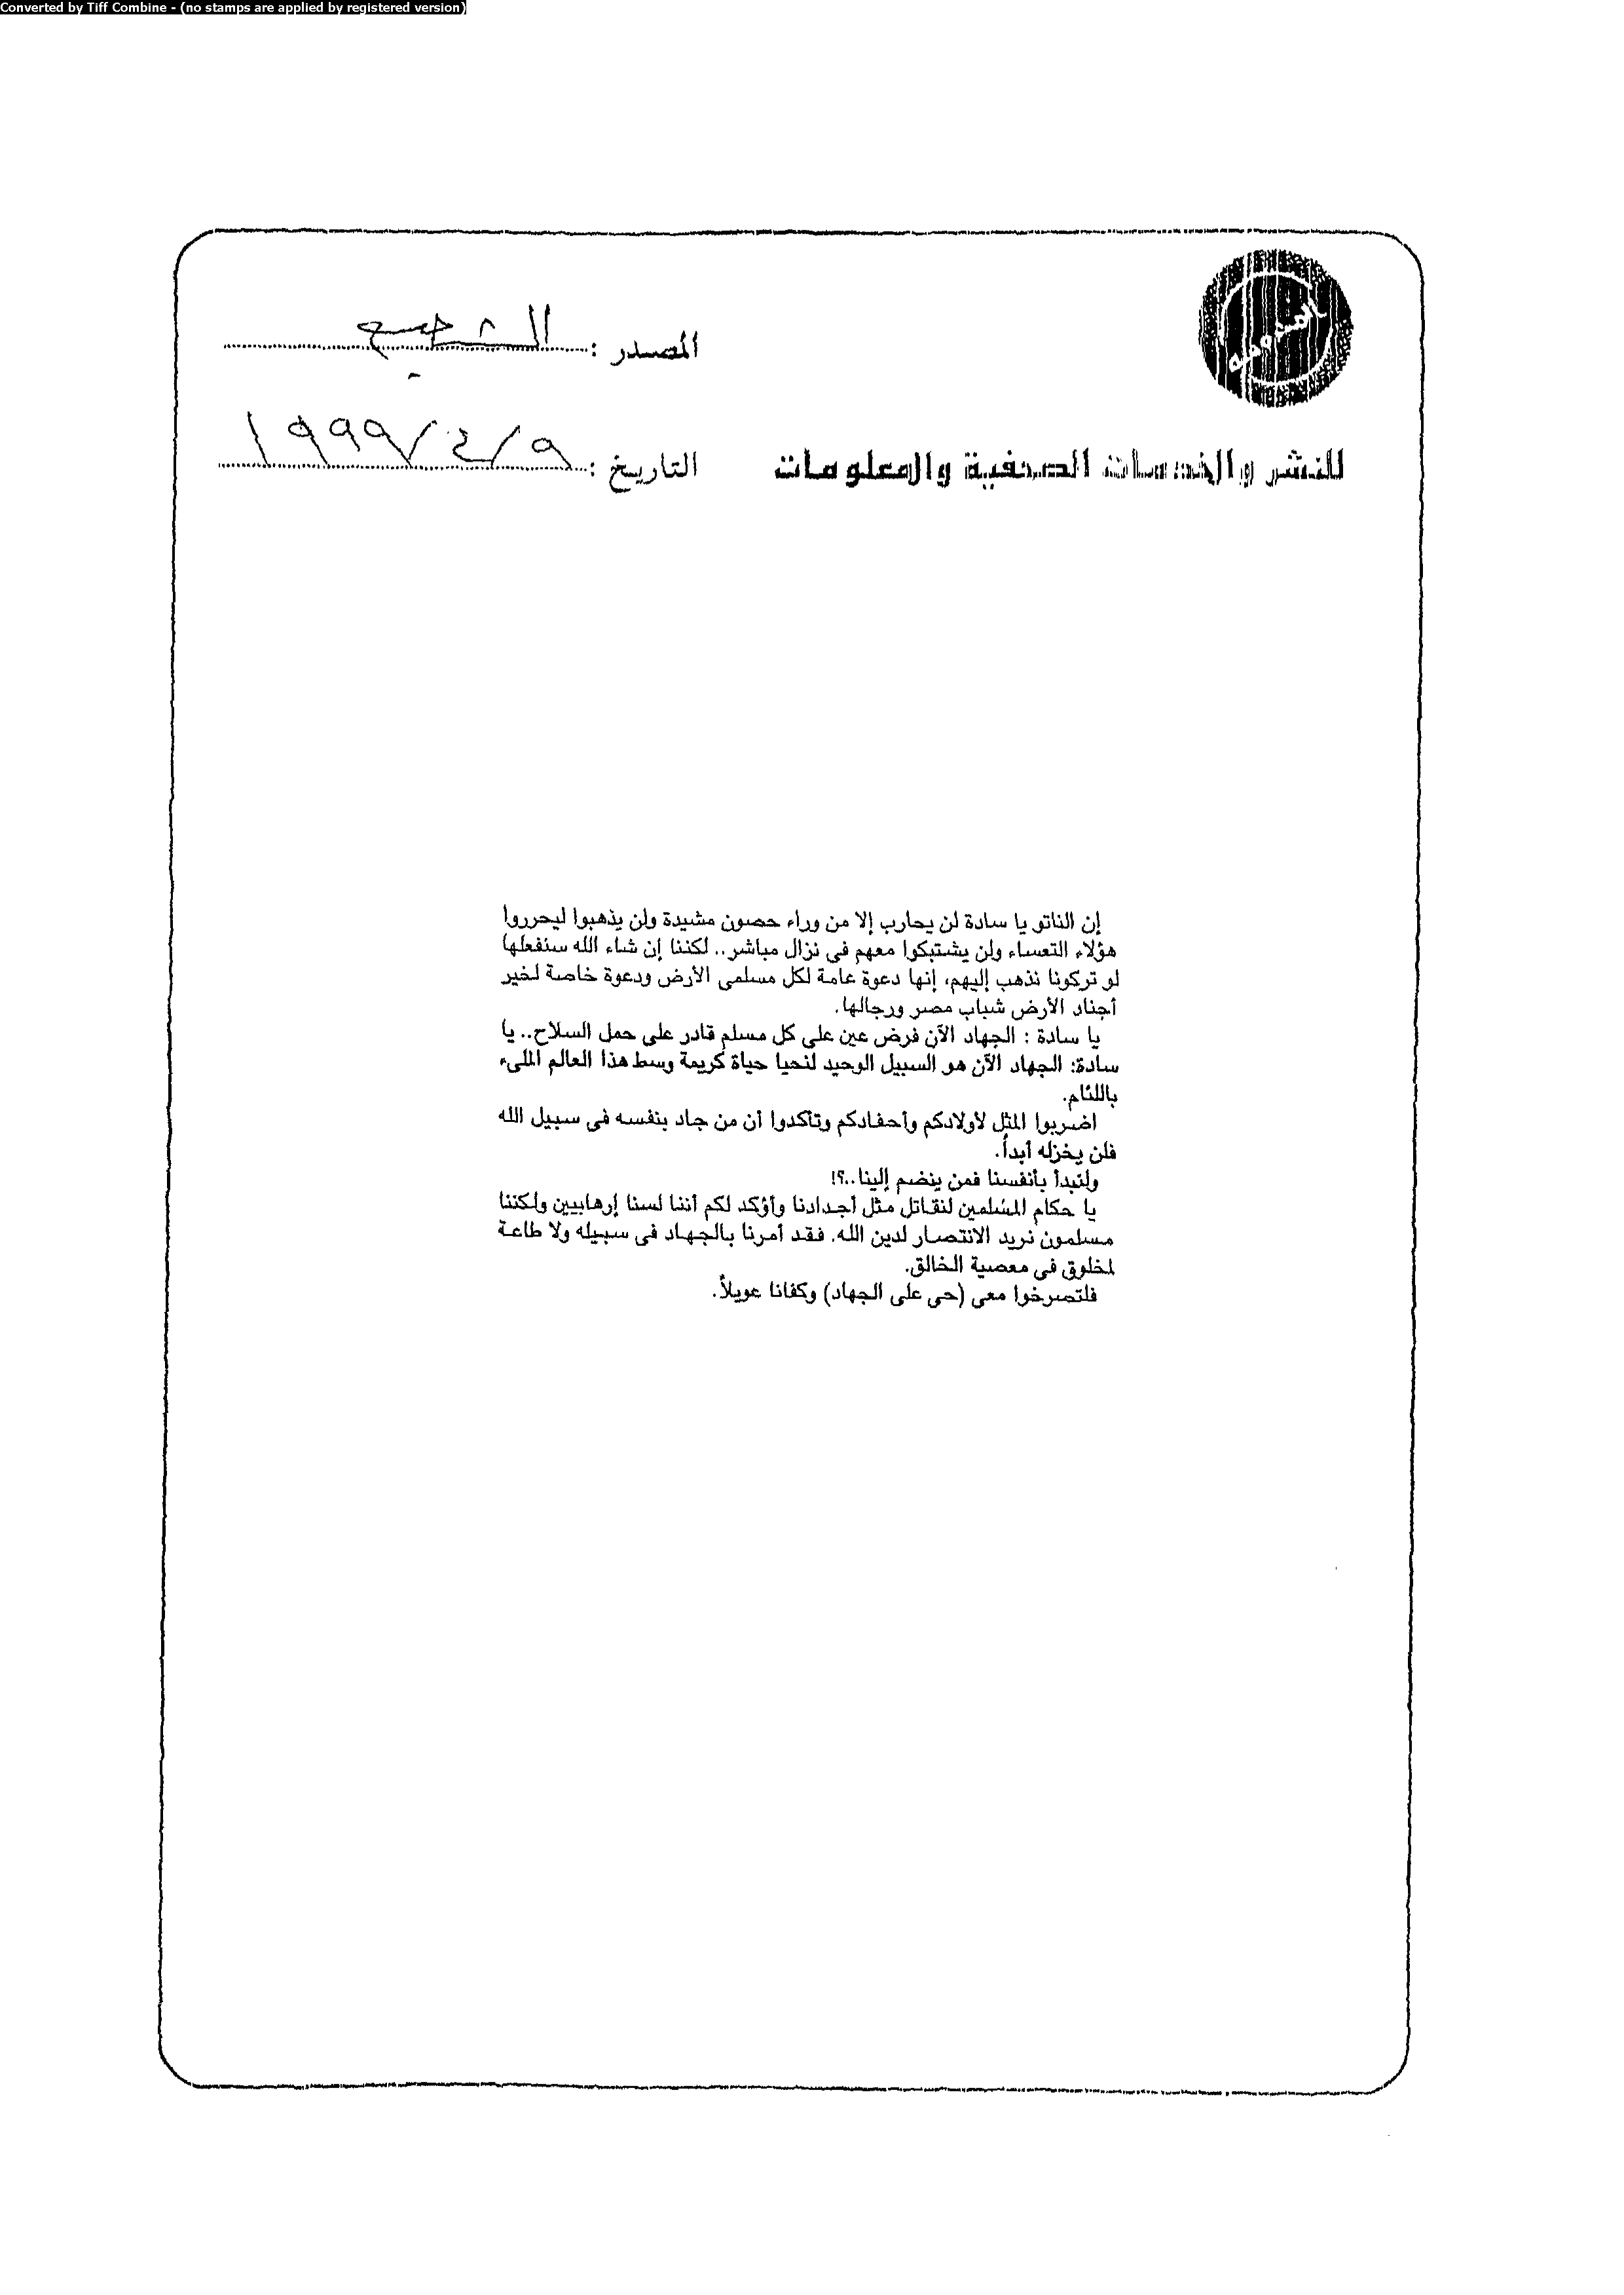 Converted by Tiff Combine - (no stamps are applied by registered version)
المصدر :
التاريخ : ٩/٤/١٩٩٩
للنشر والخدمات الصحفية والمعلومات
إن الناتو يا سادة لن يحارب إلا من وراء حصون مشيدة ولن يذهبوا ليحرروا
هؤلاء التعساء ولن يشتبكوا معهم فى نزال مباشر.. لكننا إن شاء الله سنفعلها
لو تركونا نذهب إليهم، إنها دعوة عامة لكل مسلمى الأرض ودعوة خاصة لخير
أجناد الأرض شباب مصر ورجالها.
يا سادة : الجهاد الآن فرض عين على كل مسلم قادر على حمل السلاح.. يا
سادة: الجهاد الآن هو السبيل الوحيد لنحيا حياة كريمة وسط هذا العالم الملىء
باللئام.
اضربوا المثل لأولادكم وأحفادكم وتأكدوا أن من جاد بنفسه فى سبيل الله
فلن يخزله أبداً.
ولنبدأ بأنفسنا فمن ينضم إلينا..؟!
يا حكام المسلمين لنقاتل مثل أجدادنا وأؤكد لكم أننا لسنا إرهابيين ولكننا
مسلمون نريد الانتصار لدين الله. فقد أمرنا بالجهاد فى سبيله ولا طاعة
لمخلوق فى معصية الخالق.
فلتصرخوا معى (حى على الجهاد) وكفانا عويلاً.